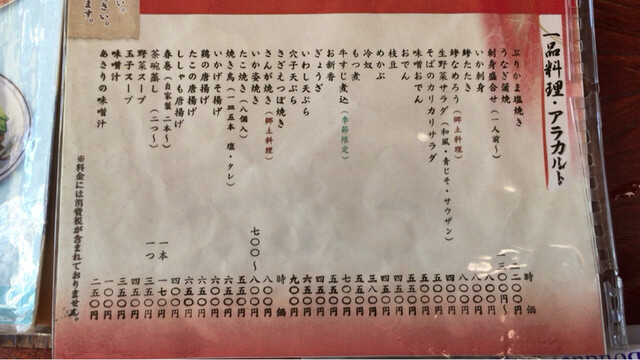 一品料理・アラカルト
ぶりかま塩焼き 時価
うなぎ蒲焼 二二〇〇円
刺身盛合せ(一人前) 一三〇〇円〜
いか刺身 八〇〇円
鯵たたき 八〇〇円
鯵なめろう(郷土料理) 八〇〇円
生野菜サラダ(和風・青じそ・サウザン) 四〇〇円
そばのカリカリサラダ 五五〇円
味噌おでん 五〇〇円
おでん 五五〇円
枝豆 四五〇円
めかぶ 四五〇円
冷奴 三八〇円
もつ煮 四五〇円
牛すじ煮込(季節限定) 七〇〇円
お新香 三五〇円
ぎょうざ 四五〇円
いわし天ぷら 六五〇円
穴子天ぷら 九〇〇円
さざえつぼ焼き 時価
さんが焼き(郷土料理) 八〇〇円
いか姿焼き 七〇〇〜
たこ焼き(八個入) 五五〇円
焼き鳥(一四五本 塩・タレ) 五五〇円
いかげそ揚げ 六五〇円
鶏の唐揚げ 六五〇円
たこの唐揚げ 六五〇円
ししゃも唐揚げ 四〇〇円
春巻(自家製 二本〜) 一本 一七〇円
茶碗蒸し(二つ〜) 一つ 三五〇円
野菜スープ 四五〇円
玉子スープ
味噌汁 一〇〇円
あさりの味噌汁 二五〇円
※料金には消費税が含まれておりません。
さい。
ます。